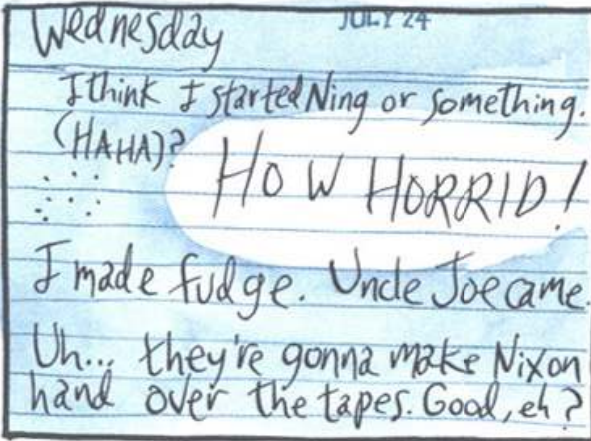 JULY 24
Wednesday
I think I started Ning or something.
(HAHA)?
HOW HORRID!
I made fudge. Uncle Joe came.
Uh... they're gonna make Nixon
hand over the tapes. Good, eh?